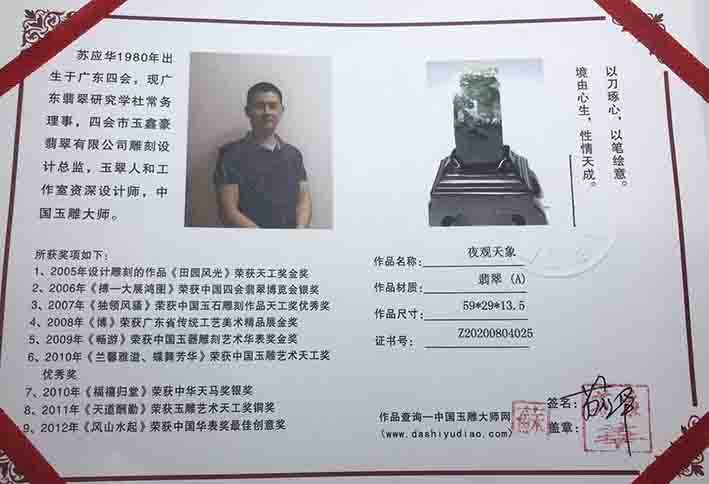 苏应华1980年出
生于广东四会，现广
东翡翠研究学社常务
理事，四会市玉鑫豪
翡翠有限公司雕刻设
计总监，玉翠人和工
作室资深设计师，中
国玉雕大师。
以刀琢心，以笔绘意。
境由心生，性情天成。
所获奖项如下：
1、2005年设计雕刻的作品《田园风光》荣获天工奖金奖
2、2006年《搏一大展鸿图》荣获中国四会翡翠博览会银奖
3、2007年《独领风骚》荣获中国玉石雕刻作品天工奖优秀奖
4、2008年《博》荣获广东省传统工艺美术精品展金奖
5、2009年《畅游》荣获中国玉器雕刻艺术华表奖金奖
6、2010年《兰馨雅溢、蝶舞芳华》荣获中国玉雕艺术天工奖
优秀奖
7、2010年《福禧归堂》荣获中华天马奖银奖
8、2011年《天道酬勤》荣获玉雕艺术天工奖铜奖
9、2012年《风山水起》荣获中国华表奖最佳创意奖
作品名称： 夜观天象
作品材质： 翡翠 (A)
作品尺寸： 59*29*13.5
证书号： Z20200804025
作品查询一中国玉雕大师网
(www.dashiyudiao.com)
签名：
盖章：